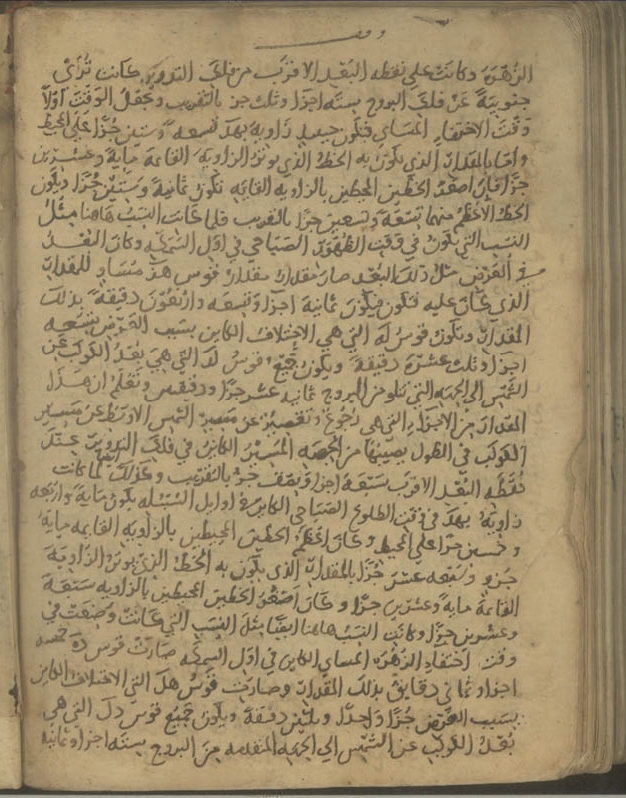 الزهرة وكانت على نقطة البعد الاقرب من فلك التدوير كانت ترى
جنوبية عن فلك البروج بستة اجزا وثلث جز بالتقريب ونجعل اولا
وقت الاختفا المساى فتكون جميع زاوية بهد تسعة وستين جزا على المحيط
واما بالمقدار الذي يكون به الخط الذي يوتر الزاوية القايمة ماية وعشرين
جزا فان اصغر الخطين المحيطين بالزاويه القايمه تكون ثمانية وستين جزا ويكون
الخط الاعظم منهما تسعة وتسعين جزا بالتقريب فلما كانت النسب هاهنا مثل
النسب التي تكون في وقت الظهور الصباحي في اول السمكه وكان البعد
في العرض مثل ذلك البعد صار مقدار قوس هد مساو للمقدار
الذي كان عليه فتكون ثمانية اجزا وتسعه واربعون دقيقة بذلك
المقدار وتكون قوس له التي هي الاختلاف الكاين بسبب العرض بتسعه
اجزا وثلث عشرة دقيقة ويكون جميع قوس لد التي هي بعد الكوكب عن
الشمس الى الجهه التي تتلو من البروج ثمانيه عشر جزا ودقيقتين وتعلم ان هذا
المقدار من الاجزا التي هي رجوع وتقصير عن مسير الشمس الاوسط عن مسير
الكوكب في الطول يصيبها من الحصه المسير الكاين في فلك التدوير عند
نقطة البعد الاقرب سبعة اجزا ونصف جز بالتقريب وكذلك لما كانت
زاوية بهد في وقت الطلوع الصباحي الكاين في اوايل السنبله يكون ماية واربعة
وخمسين جزا على المحيط وكان اعظم الخطين المحيطين بالزاويه القايمه ماية
جزو وسبعه عشر جزا بالمقدار الذي يكون به الخط الذي يوتر الزاوية
القايمة ماية وعشرين جزا وكان اصغر الخطين المحيطين بالزاويه سبعة
وعشرين جزا وكانت النسب هاهنا ايضا مثل النسب التي كانت وضعت في
وقت اختفا الزهره المساى الكاين في اول السمكه صارت قوس ده خمسه
اجزا وثماني دقايق بذلك المقدار وصارت قوس هل التي الاختلاف الكاين
بسبب العرض جزا واحدا وثلثين دقيقة ويكون جميع قوس دل التي هي
بعد الكوكب عن الشمس الى الجهه المتقدمه من البروج بستة اجزا وثمانية